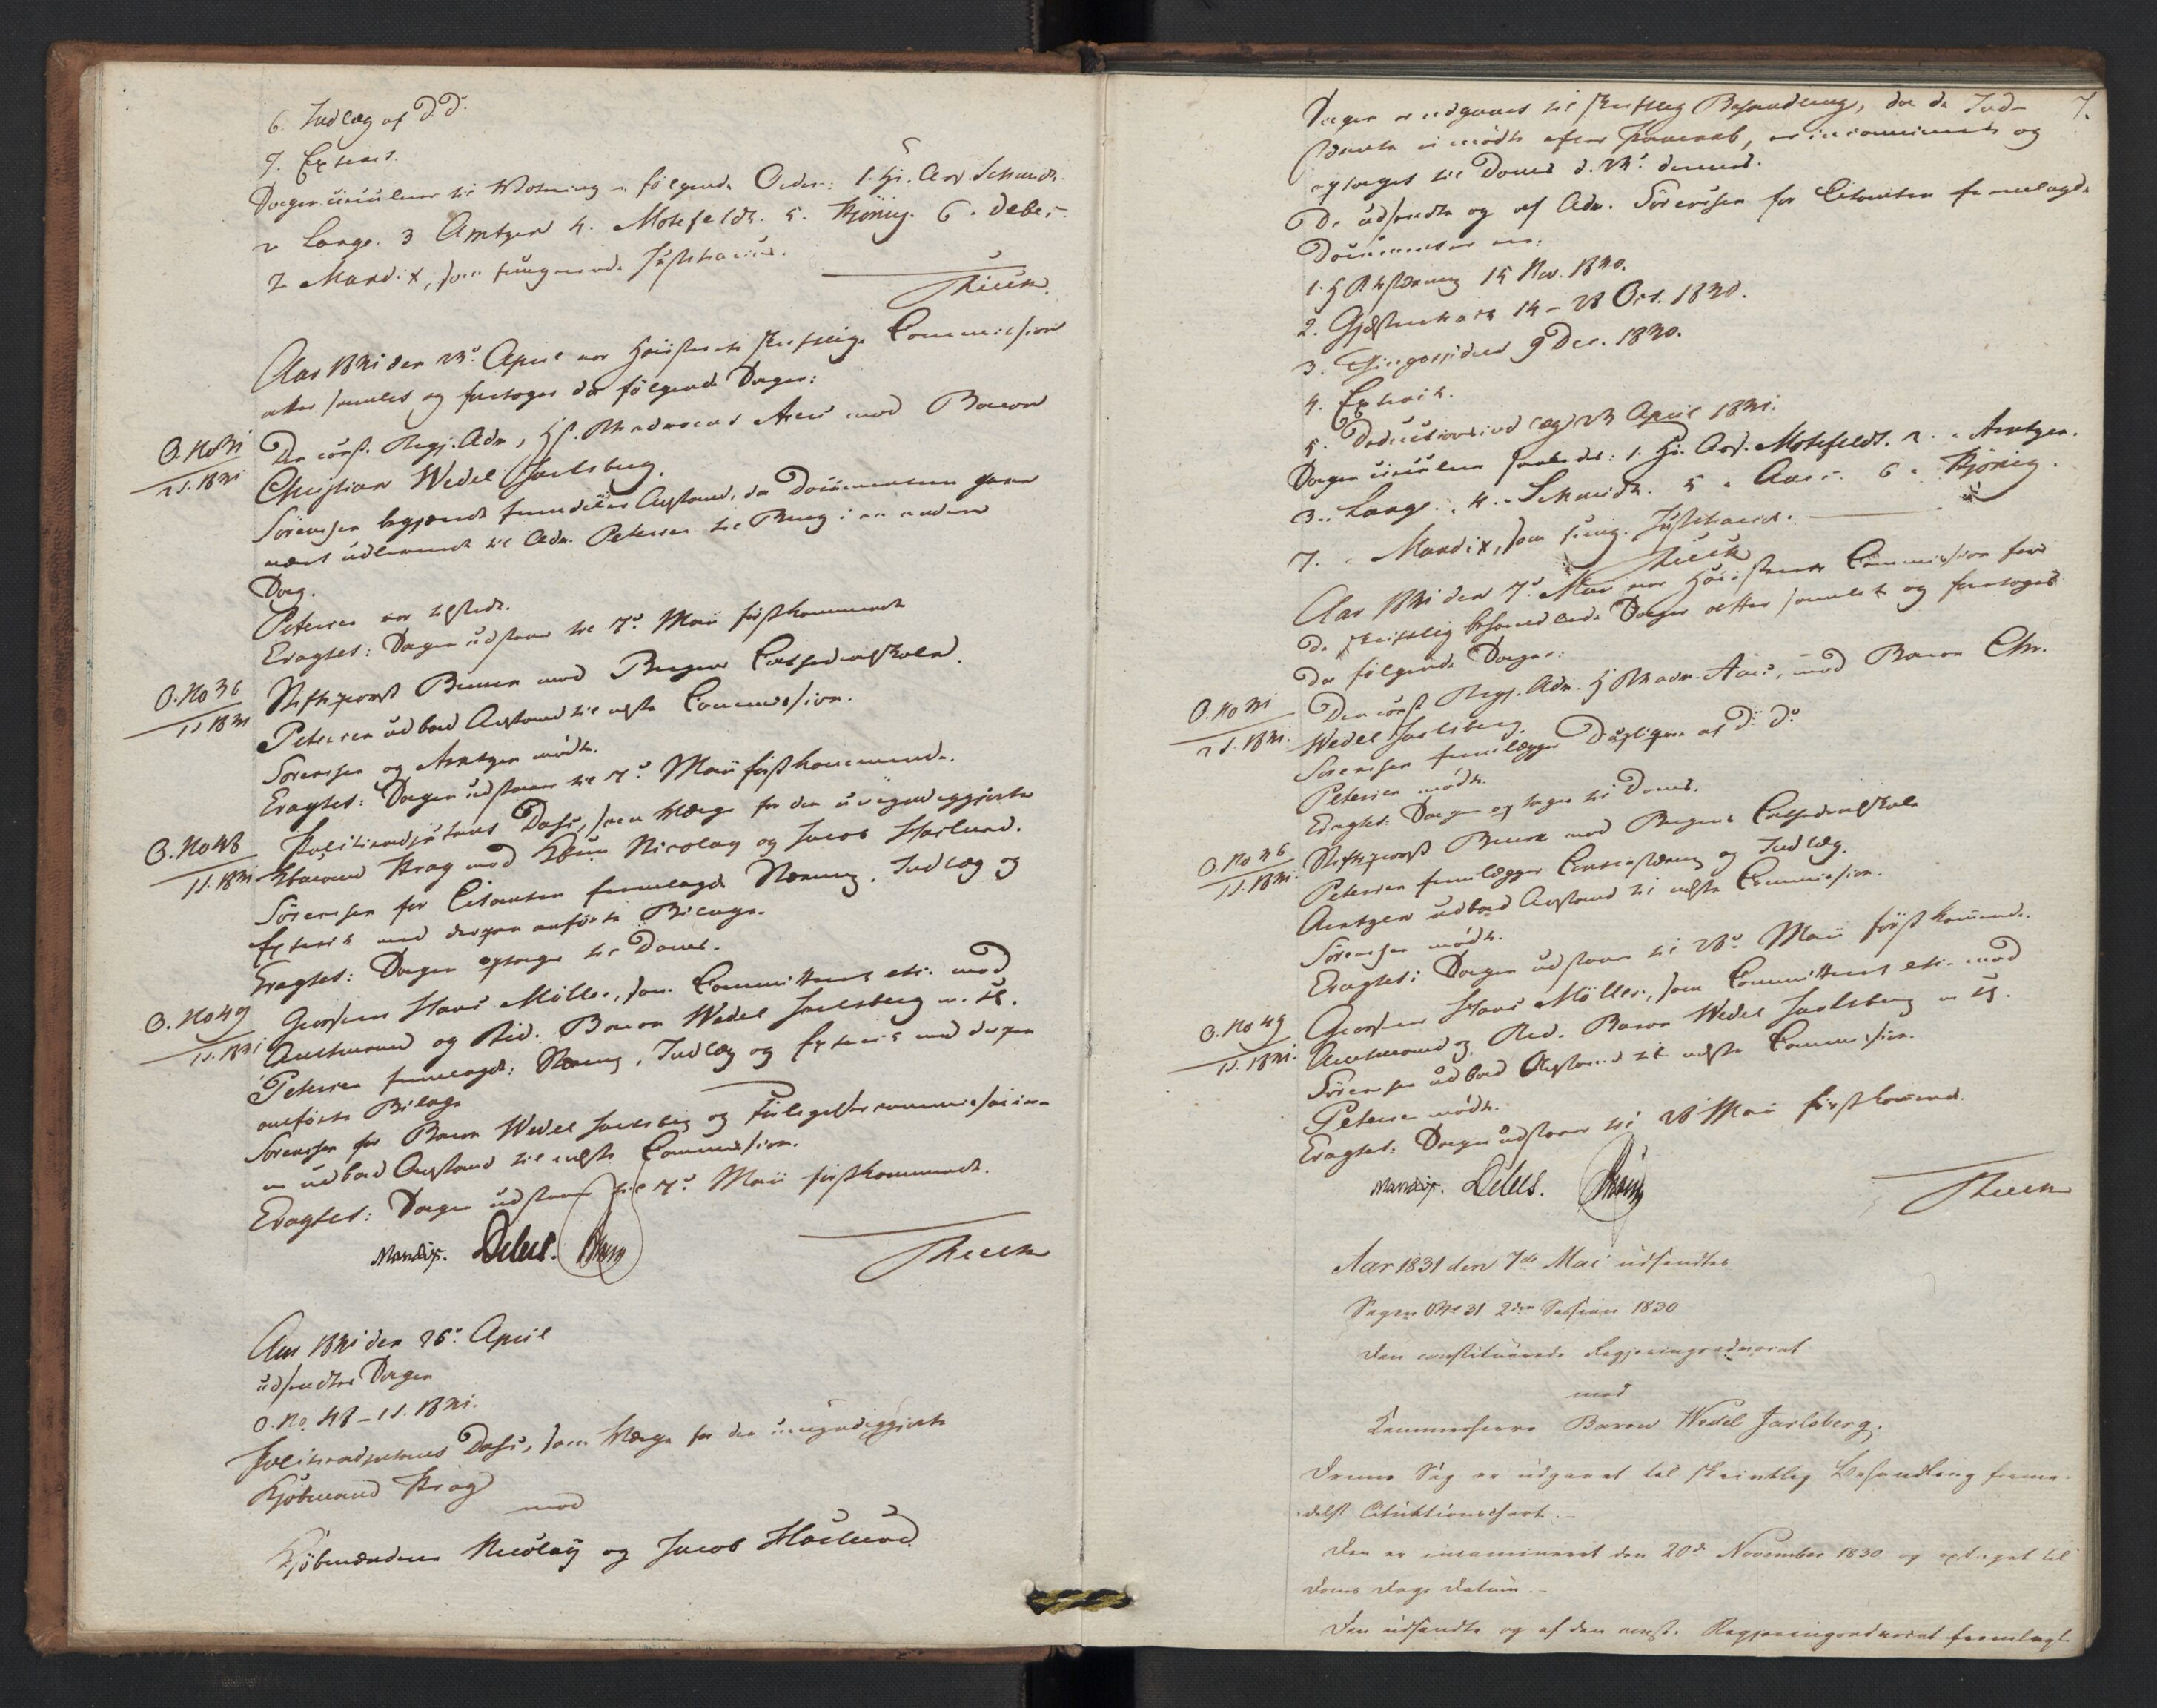 6. Indlæg af D.D.
7. Extract.
Sagen circulerer til Votering i følgende Orden: 1. Hr. Ass. Schmidt.
2 Lange. 3 Arntzen 4. Motzfeldt. 5. Kjönig. 6. Debes.
7 Mandix, som fungerende Justitiarius.
Aar 1831 den 23de April var Höiesterets skriftlige Commission
atter samlet og foretoges da følgende Sager:
O. No 31
2 S. 1830
Den const. Regj. Adv., HR. Advocat Aars mod Baron
Christian Wedel Jarlsberg.
Sörensen begjerede fremdeles Anstand, da Documenterne have
været udlaant til Adv. Petersen til Brug i en anden
Sag.
Petersen var tilstede.
Eragtet: Sagen udstaaer til 7de Maii førstkommende
O. No 36
1 S 1831
Stiftsprovst Bruun mod Bergens Cathedralskole.
Petersen udbad Anstand til næste Commission.
Sörensen og Arntzen mødte.
Eragtet: Sagen udstaaer til 7de Maii førstkommende.
O. No 48
1 S. 1831
Politieadjutant Dahs, som Værge for den umyndiggjorte
Kbmand Krag mod Kbmd Nicolay og Jacob Haslund.
Sörensen for Citanten fremlagde Stevning, Indlæg og
Extract med dertil anførte Bilage.
Eragtet: Sagen optages til Doms.
O. No 49
1 S. 1831
Grosserer Hans Möller, som Committeret etc. mod
Amtmand og Rid. Baron Wedel Jarlsberg m. fl.
Petersen fremlagde: Stevning, Indlæg og Extract med dertil
anførte Bilage
Sörensen for Baron Wedel Jarlsberg og
udbad Anstand til næste Commission.
Eragtet: Sagen udstaaer til 7de Maii førstkommende.
Mandix. Debes.
Aar 1831 den 26de April
udsendtes Sagen
O. No. 48 - 1 S. 1831.
Politieadjutant Dahs, som Værge for den umyndiggjorte
Kjöbmand Krag
mod
Kjöbmændene Nicolay og Jacob Haslund
7.
Sagen er udgaaet til skriftlig Behandling, da de Ind-
stevnte ei mødte efter, er incamineret og
optaget til Doms d. 23de dennes.
De udsendte og af Adv. Sörensen for Citanten fremlagde
Documenter ere:
1. HRStevning 15 Nov. 1830.
2. Gjæsteretsact 14 - 28 Oct. 1830.
3. 9 Dec. 1830.
4. Extract.
5. Deductionsindlæg 23 April 1831.
Sagen circulerer saaledes: 1. Hr. Ass. Motzfeldt. 2. " Arntzen.
3. " Lange. 4. " Schmidt. 5 " Aars. 6 " Kjönig.
7. " Mandix, som fung. Justitiarius.
Aar 1831 den 7de Mai var Höiesterets Commission for
de skriftlig behandlede Sager atter samlet og foretoges
da følgende Sager:
O. No 31
2 S. 1830.
Den const Regj. Adv. HRAdv. Aars, mod Baron Chr.
Wedel Jarlsberg.
Sörensen fremlægger Duplique af D. D.
Petersen mødte.
Eragtet: Sagen optages til Doms.
O. No 36
1 S. 1831.
Stiftsprovst Bruun mod Bergens Cathedralskole
Petersen fremlægger Contrastevning og Indlæg.
Arntzen udbad Anstand til næste Commission.
Sörensen mødte.
Eragtet: Sagen udstaaer til 28de Maii førstkommende.
O. No 49
1 S. 1831.
Grosserer Hans Möller, som Committeret etc. mod
Amtmand og Rid. Baron Wedel Jarlsberg m fl.
Sörensen udbad Anstand til næste Commission.
Petersen mødte.
Eragtet: Sagen udstaaer til 28 Maii førstkommende.
Mandix. Debes.
Aar 1831 den 7de Mai udsendtes
Sagen O No 31 2den Session 1830
Den constituerede Regjeringsadvocat
mod
Kammerherre Baron Wedel Jarlsberg.
Denne Sag er udgaaet til skriftlig Behandling frem-
Den er incamineret den 20de November 1830 og optaget til
Doms Dags Datum.-
Den udsendte og af den const. Regjeringsadvocat fremlagte